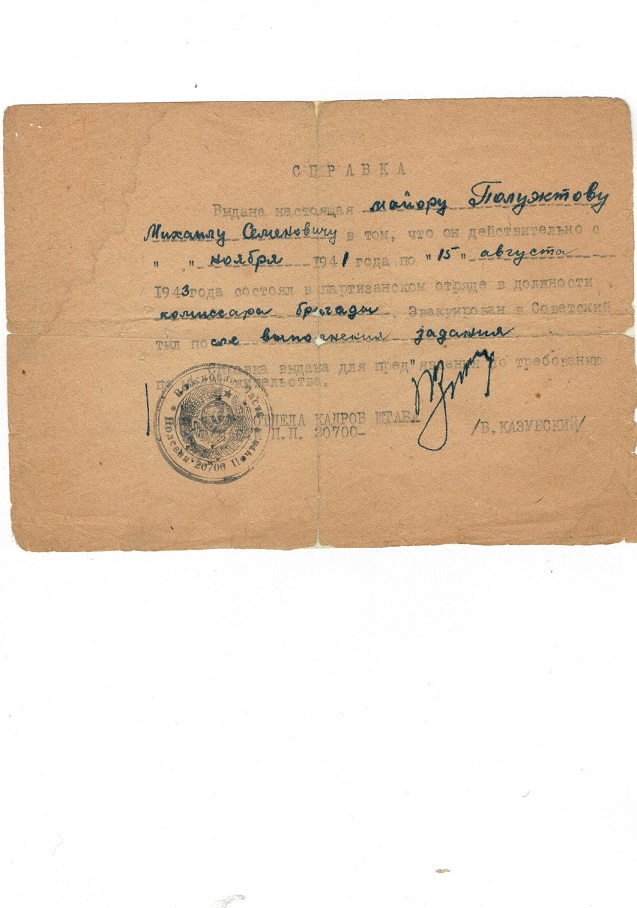 СПРАВКА
Выдана настоящая майору Полуэктову
Михаилу Семеновичу в том, что он действительно с
" " ноября 1941 года по "15" августа
1943 года состоял в партизанском отряде в должности
комиссара бригады. Эвакуирован в Советский
тыл после выполнения задания
Справка выдана для пред"явления по требованию
ОТДЕЛА КАДРОВ ШТАБА
П.П. 20700- /В. КАЗУБСКИЙ/
Полевая Почта 20700